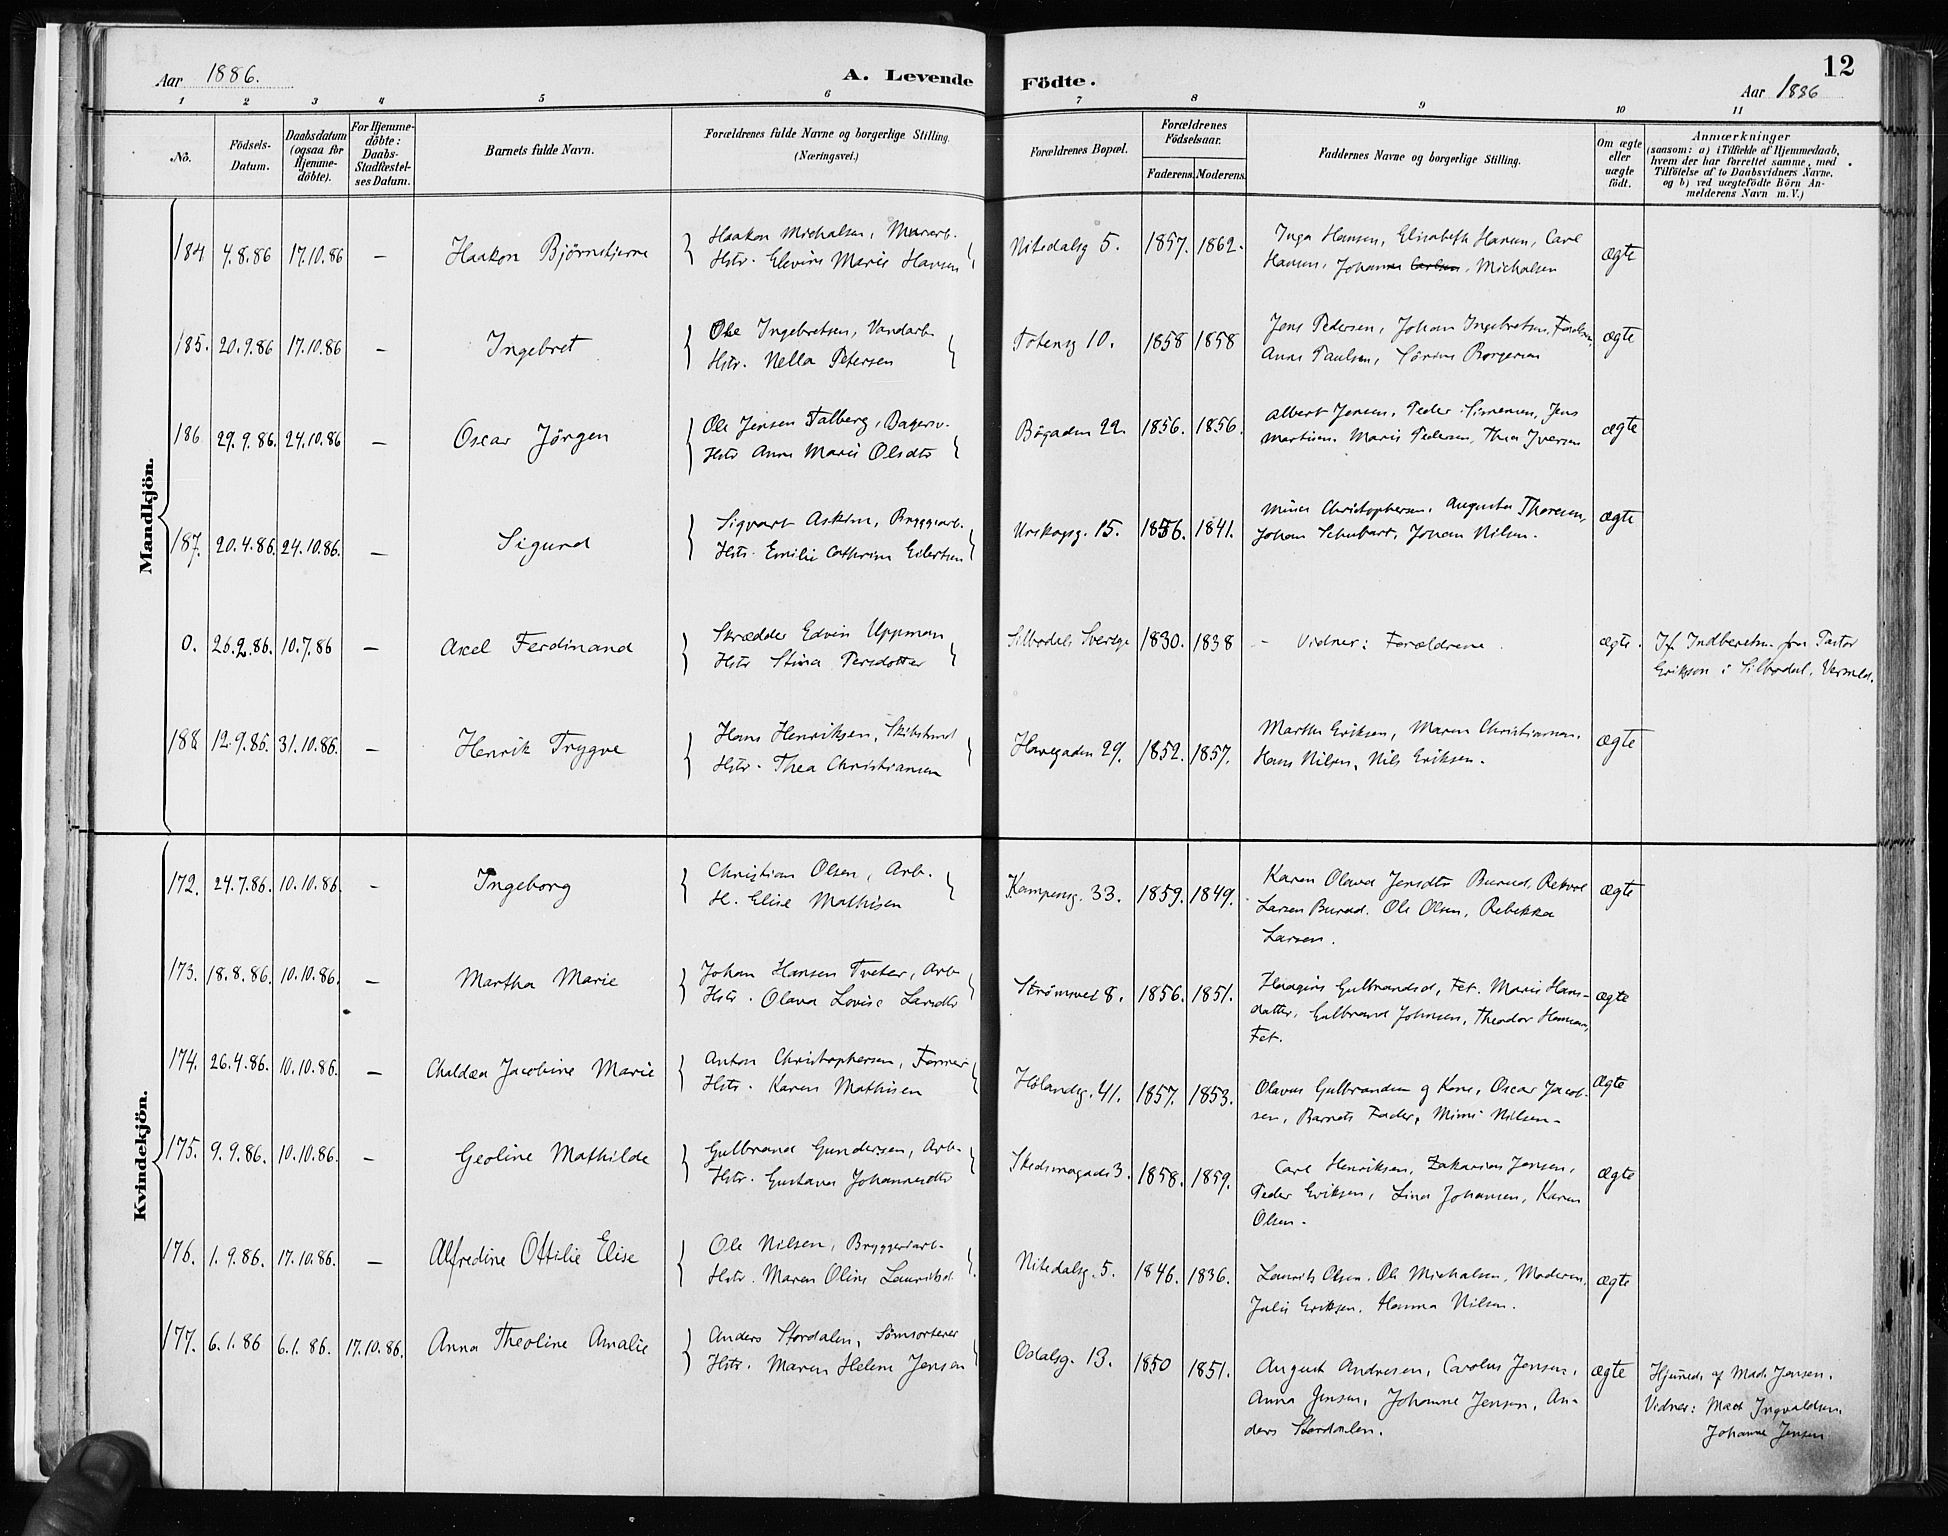 Aar 1886.
A. Levende
Födte.
12
Aar 1886
1 2 3 4 5 6 7 8 9 10 11
No.
Födsels-
Datum.
Daabsdatum
(ogsaa for
Hjemme-
döbte).
For Hjemme-
döbte:
Daabs-
Stadfæstel-
ses Datum.
Barnets fulde Navn.
Forældrenes fulde Navne og borgerlige Stilling.
(Næringsvei.)
Forældrenes Bopæl.
Forældrenes
Födselsaar.
Faderens. Moderens.
Faddernes Navne og borgerlige Stilling.
Om ægte
eller
uægte
födt.
Anmærkninger
(saasom: a) i Tilfælde af Hjemmedaab,
hvem der har forrettet samme, med
Tilföielse af to Daabsvidners Navne.
og b) ved uægtefödte Börn An-
melderens Navn m. V.)
Mandkjön.
184 4.8.86 17.10.86 — Haakon Bjørnstjerne
Haakon Michalsen, Murarb.
Hstr. Elevine Marie Hansen
Nitedalsg 5. 1857. 1862.
Inga Hansen, Elisabeth Hansen, Carl
Hansen, Johannes Carlsen, Michalsen
ægte
185. 20.9.86 17.10.86 — Ingebret
Ole Ingebretsen, Vandarb.
Hstr. Nella Petersen
Totensg 10. 1858 1858
Jens Pedersen, Johan Ingebretsen,
Anne Paulsen, Borgersen
ægte
186 29.9.86. 24.10.86 — Oscar Jörgen
Ole Jensen Falberg, Bagersv.
Hstr Anne Marie Olsdtr
Bögaden 22. 1856. 1856.
Albert Jensen, Peder Simensen, Jens
Martinsen. Marie Pedersen, Thea Iversen
ægte
187. 20.4.86. 24.10.86. — Sigurd
Sigvart Askim, Bryggearb.
Hstr. Emilie Cathrine Eilertsen
Urskogsg. 15. 1856. 1841.
Christophersen, Augusta Thoresen,
Johan Schubart, Johan Nilsen.
ægte
0. 26.2.86. 10.7.86 — Axel Ferdinand
Skrædder Edvin Uppman
Hstr Stina Persdotter
Silbodal Sverige 1830. 1838
— Vidner: Forældrene.
ægte.
If. Indberetn. fra Pastor
Erikson i Silbodal, Vermld.
188 12.9.86. 31.10.86. — Henrik Trygve
Hans Henriksen,
Hstr. Thea Christiansen
Havegaden 29. 1852. 1857.
Martha Eriksen, Maren Christiansen.
Hans Nilsen, Nils Eriksen.
ægte
Kvindekjön.
172. 24.7.86. 10.10.86. — Ingeborg
Christian Olsen, Arb.
H. Elise Mathisen
Kampensg. 33. 1859. 1849.
Karen Olava Jensdtr Burud,
Larsen Burud. Ole Olsen, Rebekka
Larsen.
ægte
173. 18.8.86. 10.10.86. — Martha Marie
Johan Hansen Tveter, Arb.
Hstr. Olava Lovise Larsdtr
Strømsvei 8. 1856. 1851.
Gulbrandsd, Fet. Marie Hans-
datter, Gulbrand Johnsen, Theodor Hansen,
Fet.
ægte
174. 26.4.86. 10.10.86. — Chaldæa Jacobine Marie
Anton Christophersen, Former
Hstr. Karen Mathisen
Hölandsg. 41. 1857. 1853.
Olavus Gulbrandsen og Kone, Oscar Jacob-
sen, Barnets Fader, Mimi Nilsen.
Ægte
175. 9.9.86. 10.10.86. — Geoline Mathilde
Gulbrand Gundersen, Arb.
Hstr. Gustava Johannesdtr
Skedsmogade 3. 1858. 1859.
Carl Henriksen, Zakarias Jensen,
Peder Eriksen, Lina Johansen, Karen
Olsen.
Ægte
176. 1.9.86. 17.10.86. — Alfredine Ottilie Elise
Ole Nilsen, Bryggeriarb.
Hstr. Maren Oline Lauritsd.
Nitedalsg. 5. 1846. 1836.
Laurits Olsen. Ole Michalsen, Moderen,
Julie Eriksen, Hanna Nilsen.
ægte
177. 6.1.86 6.1.86. 17.10.86. Anna Theoline Amalie
Anders Stordalen, Sömsorterer
Hstr. Maren Helene Jensen
Odalsg. 13. 1850 1851.
August Andresen, Carolus Jensen,
Anna Jensen, Johanne Jensen, An-
ders Stordalen.
ægte
Hjemed. af Mad. Jensen.
Vidner: Mad Ingvaldsen,
Johanne Jensen